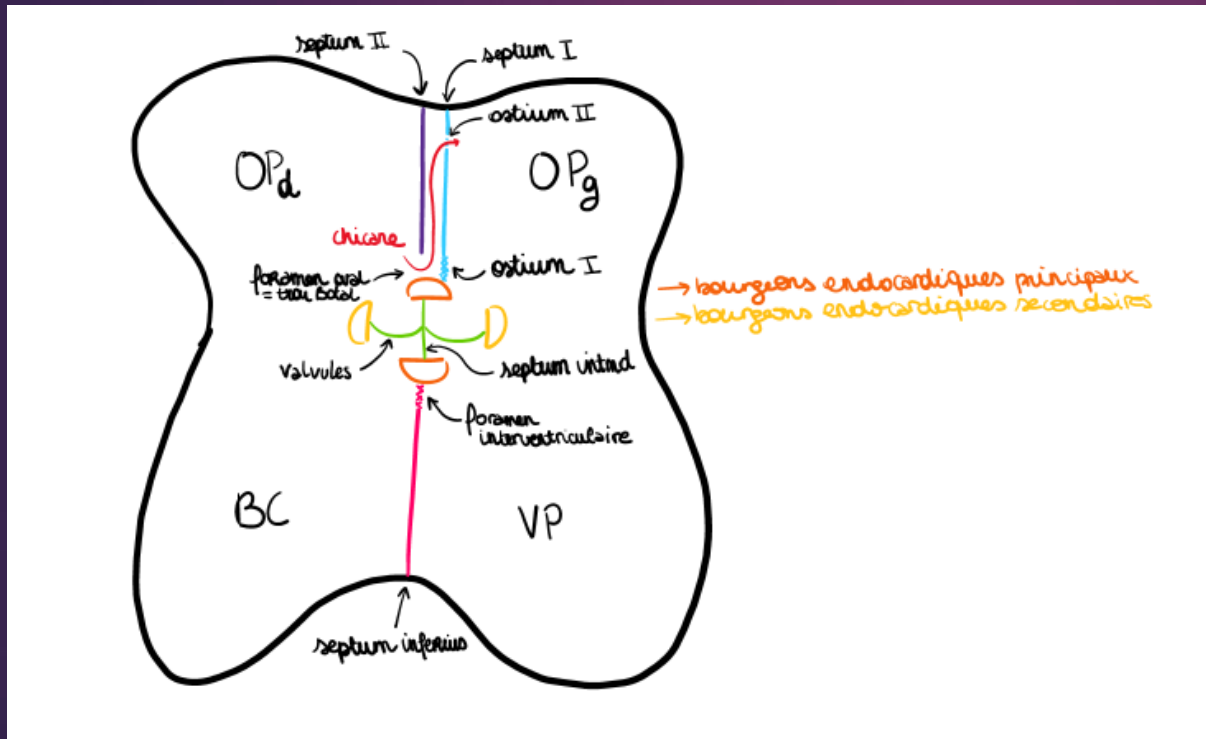 septum II
septum I
ostium II
OPd
OPg
chicane
foramen oval
= trou Botal
ostium I
→ bourgeons endocardiques principaux
→ bourgeons endocardiques secondaires
valvules
septum intmd
foramen
interventriculaire
BC
VP
septum inferius